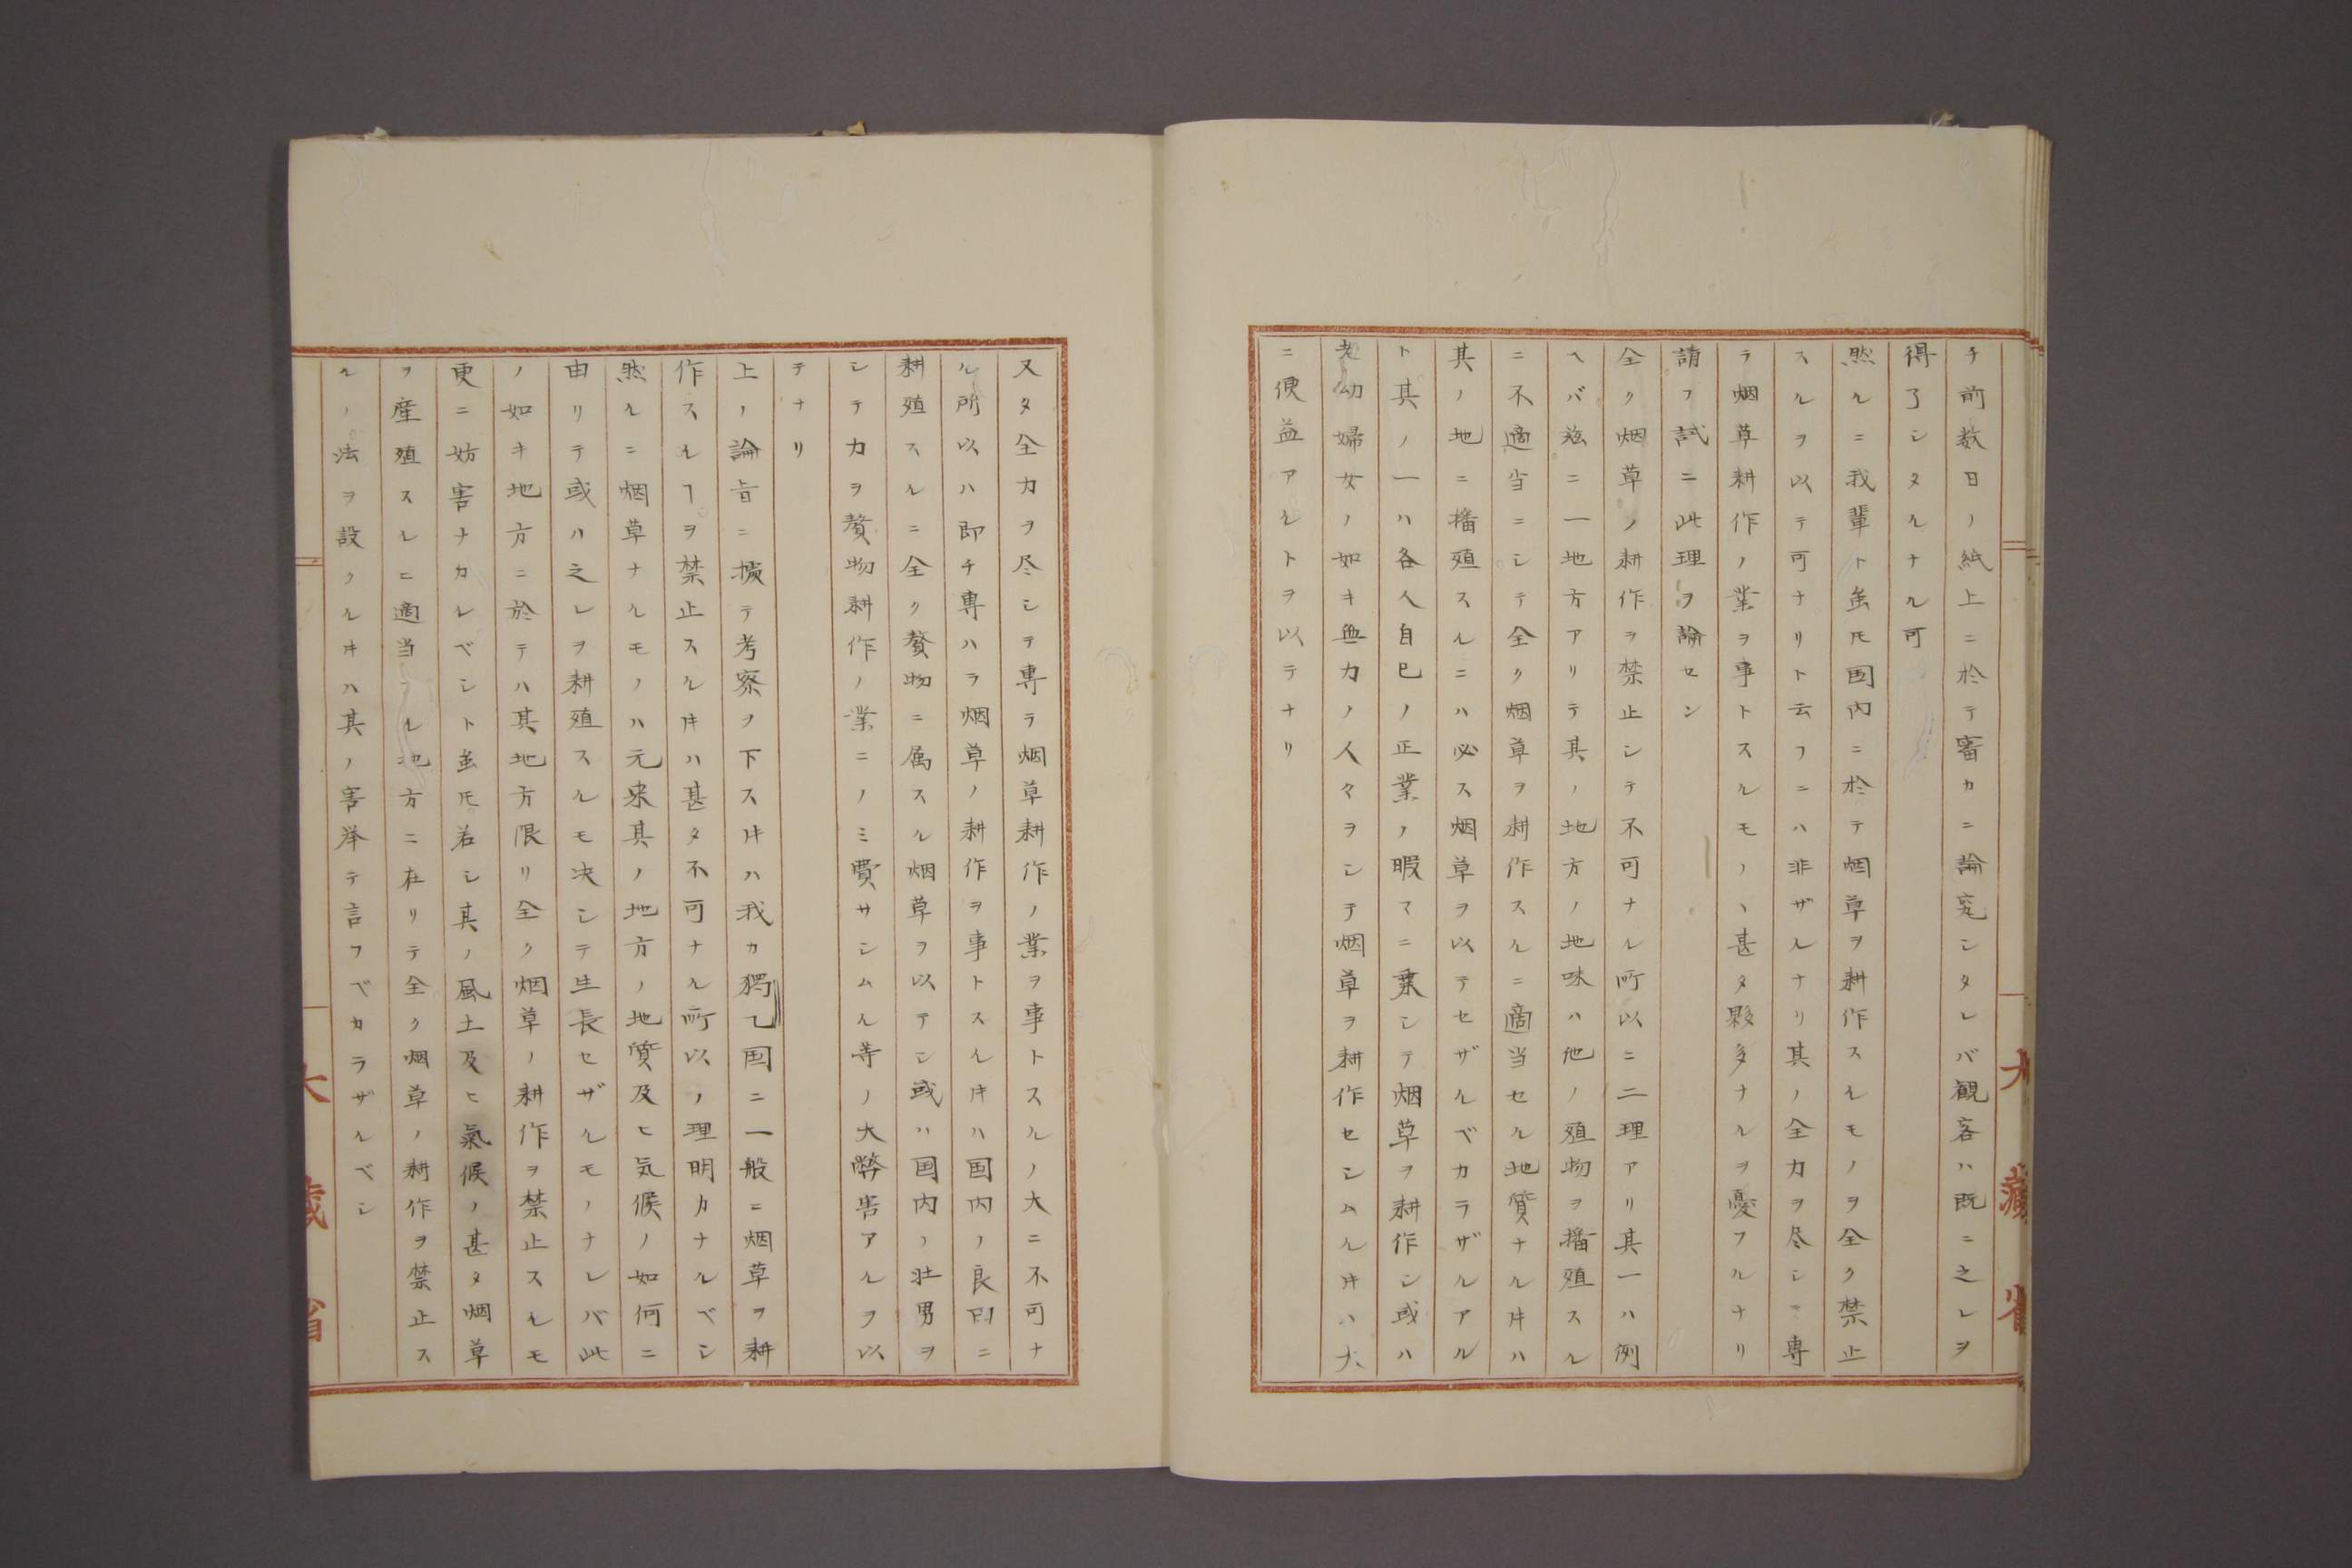 チ前数日ノ紙上ニ於テ審カニ論究シタレバ観客ハ既ニ之レヲ
得了シタルナル可
然ルニ我輩ト虽𪜈国内ニ於テ烟草ヲ耕作スルモノヲ全ク禁止
スルヲ以テ可ナリト云フニハ非ザルナリ其ノ全力ヲ尽シテ専
ラ烟草耕作ノ業ヲ事トスルモノヽ甚タ夥多ナルヲ憂フルナリ
請フ試ニ此理ヲ論セン
全ク烟草ノ耕作ヲ禁止シテ不可ナル所以ニ二理アリ其一ハ例
ヘバ茲ニ一地方アリテ其ノ地方ノ地味ハ他ノ殖物ヲ播殖スル
ニ不適当ニシテ全ク烟草ヲ耕作スルニ適当セル地質ナル𪜈ハ
其ノ地ニ播殖スルニハ必ス烟草ヲ以テセザルベカラザルアル
ト其ノ一ハ各人自己ノ正業ノ暇マニ乗シテ烟草ヲ耕作シ或ハ
老幼婦女ノ如キ無力ノ人々ヲシテ烟草ヲ耕作セシムル𪜈ハ大
ニ便益アルトヲ以テナリ
又タ全力ヲ尽シテ専ラ烟草耕作ノ業ヲ事トスルノ大ニ不可ナ
ル所以ハ即チ専ハラ烟草ノ耕作ヲ事トスル𪜈ハ国内ノ良田ニ
耕殖スルニ全ク贅物ニ属スル烟草ヲ以テシ或ハ国内ノ壮男ヲ
シテ力ヲ贅物耕作ノ業ニノミ費サシムル等ノ大弊害アルヲ以
テナリ
上ノ論旨ニ拠テ考察ヲ下ス𪜈ハ我カ獨乙国ニ一般ニ烟草ヲ耕
作スルヿヲ禁止スル𪜈ハ甚タ不可ナル所以ノ理明カナルベシ
然ルニ烟草ナルモノハ元来其ノ地方ノ地質及ヒ気候ノ如何ニ
由リテ或ハ之レヲ耕殖スルモ决シテ生長セザルモノナレバ此
ノ如キ地方ニ於テハ其地方限リ全ク烟草ノ耕作ヲ禁止スルモ
更ニ妨害ナカルベシト虽𪜈若シ其ノ風土及ヒ氣候ノ甚タ烟草
ヲ産殖スルニ適当ナル地方ニ在リテ全ク烟草ノ耕作ヲ禁止ス
ルノ法ヲ設クル𪜈ハ其ノ害挙テ言フベカラザルベシ
大藏省
大藏省